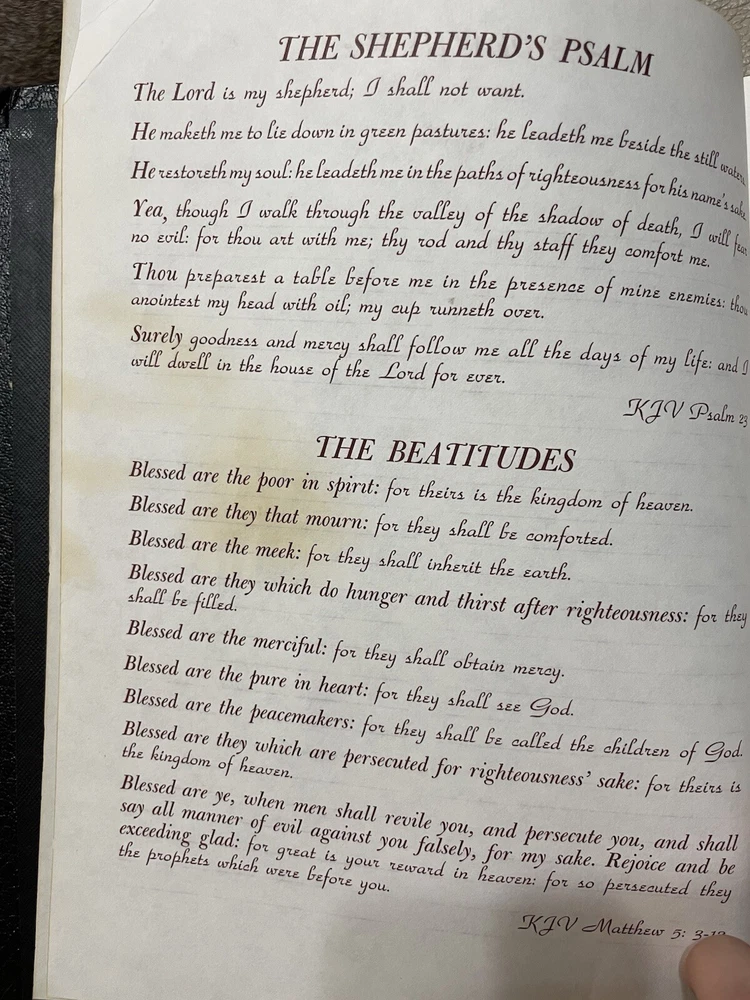 THE SHEPHERD'S PSALM
The Lord is my shepherd; I shall not want.
He maketh me to lie down in green pastures: he leadeth me beside the still waters.
He restoreth my soul: he leadeth me in the paths of righteousness for his name's sake.
Yea, though I walk through the valley of the shadow of death, I will fear
no evil: for thou art with me; thy rod and thy staff they comfort me.
Thou preparest a table before me in the presence of mine enemies: thou
anointest my head with oil; my cup runneth over.
Surely goodness and mercy shall follow me all the days of my life: and I
will dwell in the house of the Lord for ever.
KJV Psalm 23
THE BEATITUDES
Blessed are the poor in spirit: for theirs is the kingdom of heaven.
Blessed are they that mourn: for they shall be comforted.
Blessed are the meek: for they shall inherit the earth.
Blessed are they which do hunger and thirst after righteousness: for they
shall be filled.
Blessed are the merciful: for they shall obtain mercy.
Blessed are the pure in heart: for they shall see God.
Blessed are the peacemakers: for they shall be called the children of God.
Blessed are they which are persecuted for righteousness' sake: for theirs is
the kingdom of heaven.
Blessed are ye, when men shall revile you, and persecute you, and shall
say all manner of evil against you falsely, for my sake. Rejoice and be
exceeding glad: for great is your reward in heaven: for so persecuted they
the prophets which were before you.
KJV Matthew 5: 3-12